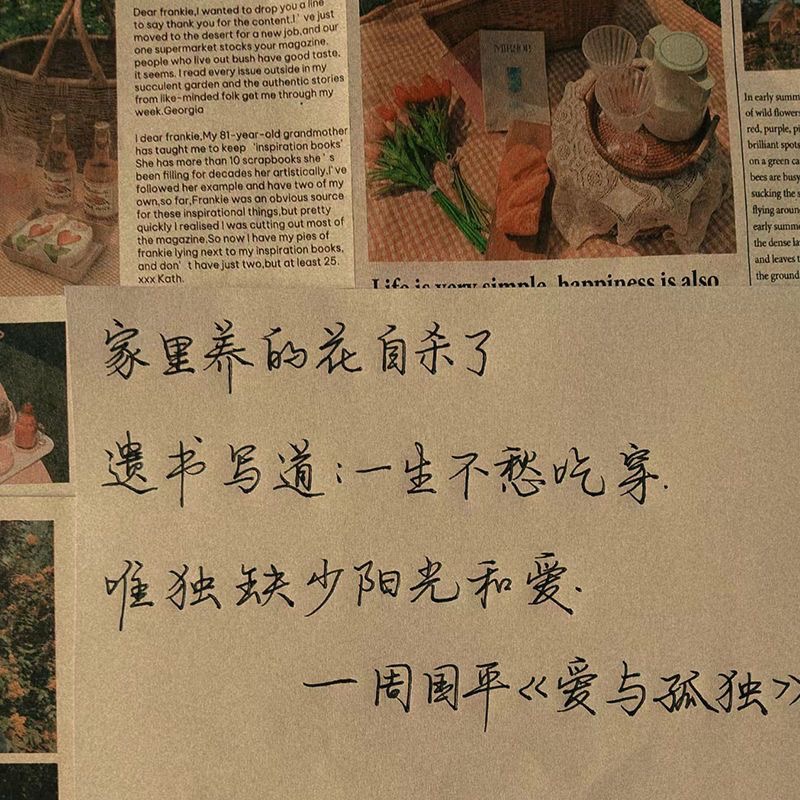 Dear frankie,I wanted to drop you a line
to say thank you for the content.I've just
moved to the desert for a new job,and our
one supermarket stocks your magazine.
people who live out bush have good taste,
it seems. I read every issue outside in my
succulent garden and the authentic stories
from like-minded folk get me through my
week.Georgia
I dear frankie,My 81-year-old grandmother
has taught me to keep 'inspiration books'
She has more than 10 scrapbooks she's
been filling for decades her artistically.I've
followed her example and have two of my
own,so far,Frankie was an obvious source
for these inspirational things,but pretty
quickly I realised I was cutting out most of
the magazine.So now I have my pies of
frankie lying next to my inspiration books,
and don't have just two,but at least 25.
xxx Kath.
Life is very simple, happiness is also
In early summ
of wild flower
red, purple, pi
brilliant spots
on a green ca
bees are busy
sucking the s
flying aroun
early summe
the dense la
and leaves t
the ground
家里养的花自杀了
遗书写道:一生不愁吃穿.
唯独缺少阳光和爱.
—周国平《爱与孤独》